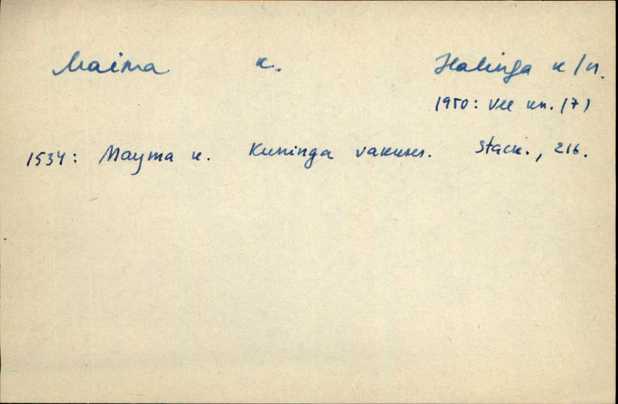 Maima k. Halinga k/n.
1950: Vee kn. (7)
1534: Mayma k. Kuninga vakuses. Stack., 216.